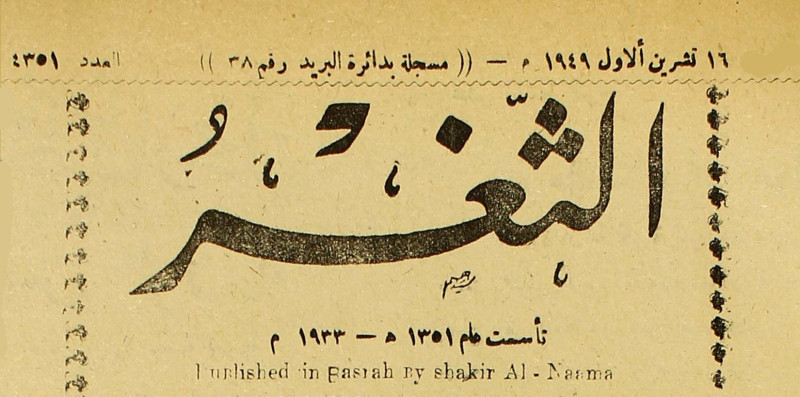 ١٦ تشرين ألاول ١٩٤٩ م — (( مسجلة بدائرة البريد رقم ٣٨ )) العدد ٤٣٥١
الثَّغْرُ
تأسست عام ١٣٥١ ه — ١٩٣٣ م
Published in Basrah By shakir Al - Naama